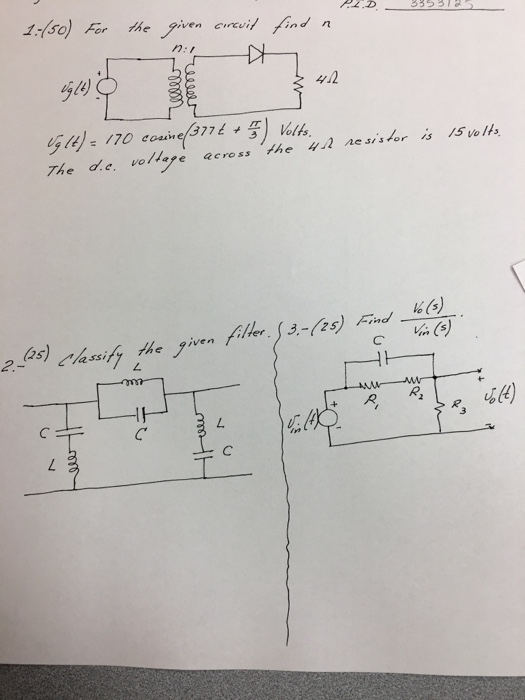 P.I.D. 3353125
1.-(50) For the given circuit find n
n:1
+
vg(t)
-
4Ω
vg(t) = 170 cosine(377t + π/3) Volts.
The d.c. voltage across the 4Ω resistor is 15 volts.
2.-(25) Classify the given filter.
L
C
C
L
L
C
3.-(25) Find Vo(s)/Vin(s).
C
R1
R2
+
vin(t)
-
R3
+
vo(t)
-